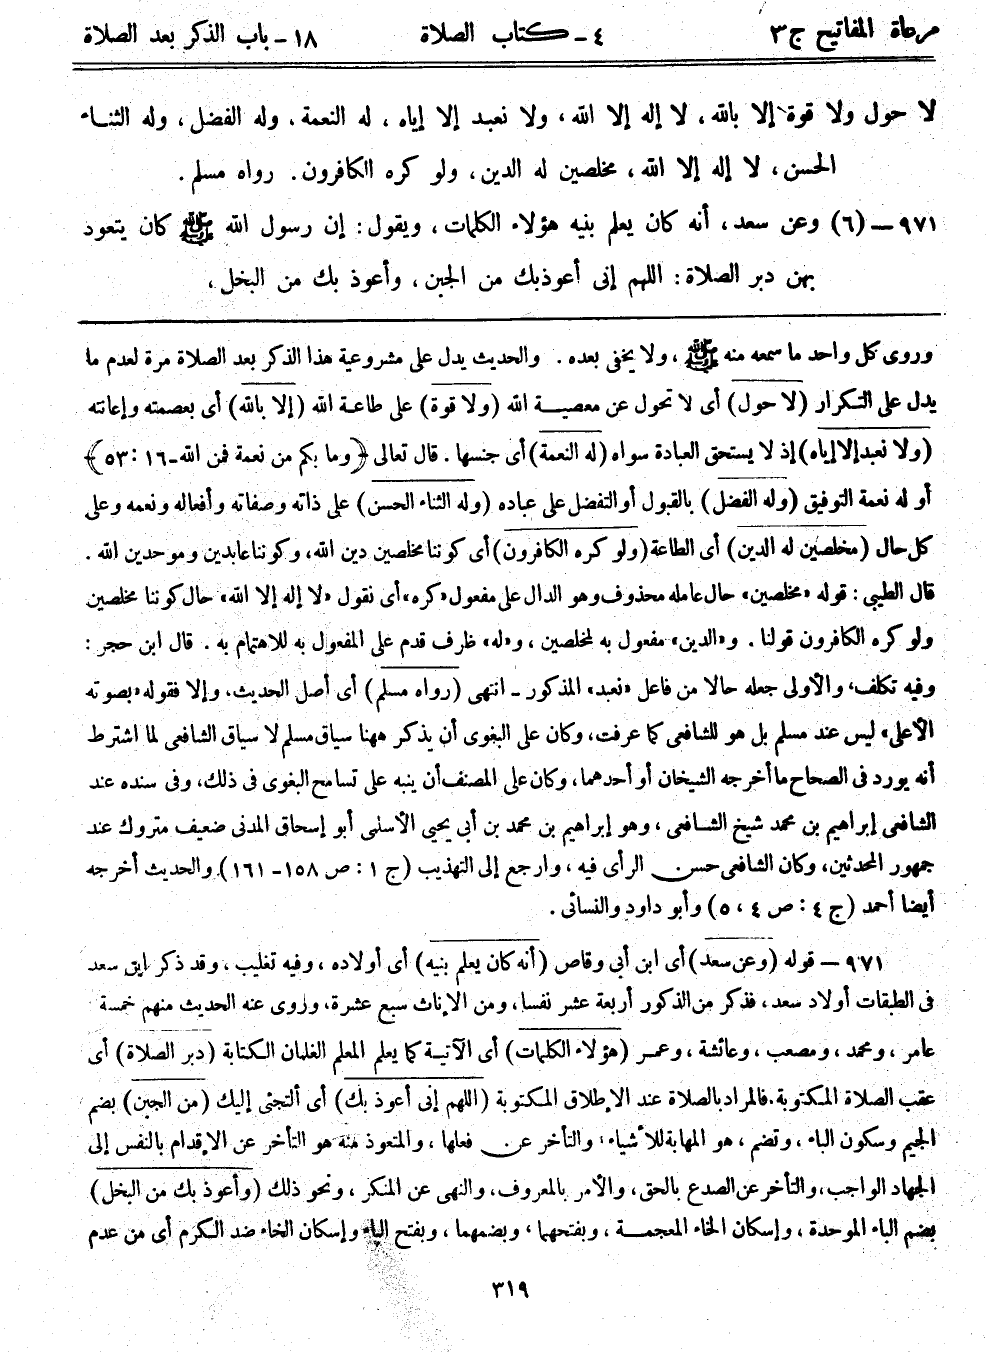 مرعاة المفاتيح ج٣ ٤ - كتاب الصلاة ١٨ - باب الذكر بعد الصلاة
لا حول ولا قوة إلا بالله، لا إله إلا الله، ولا نعبد إلا إياه، له النعمة، وله الفضل، وله الثناء
الحسن، لا إله إلا الله، مخلصين له الدين، ولو كره الكافرون. رواه مسلم.
٩٧١ - (٦) وعن سعد، أنه كان يعلم بنيه هؤلاء الكلمات، ويقول: إن رسول الله ﷺ كان يتعوذ
بهن دبر الصلاة: اللهم إنى أعوذبك من الجبن، وأعوذ بك من البخل،
وروى كل واحد ما سمعه منه ﷺ، ولا يخفى بعده. والحديث يدل على مشروعية هذا الذكر بعد الصلاة مرة لعدم ما
يدل على التكرار (لا حول) أى لا تحول عن معصية الله (ولا قوة) على طاعة الله (إلا بالله) أى بعصمته وإعانته
(ولا نعبد إلا إياه) إذ لا يستحق العبادة سواه (له النعمة) أى جنسها. قال تعالى ﴿وما بكم من نعمة فمن الله - ١٦: ٥٣﴾
أو له نعمة التوفيق (وله الفضل) بالقبول أو التفضل على عباده (وله الثناء الحسن) على ذاته وصفاته وأفعاله ونعمه وعلى
كل حال (مخلصين له الدين) أى الطاعة (ولو كره الكافرون) أى كوننا مخلصين دين الله، وكوننا عابدين وموحدين الله.
قال الطيبى: قوله «مخلصين» حال عامله محذوف وهو الدال على مفعول «كره» أى نقول «لا إله إلا الله» حال كوننا مخلصين
ولو كره الكافرون قولنا. و«الدين» مفعول به لمخلصين، و«له» ظرف قدم على المفعول به للاهتمام به. قال ابن حجر:
وفيه تكلف، والأولى جعله حالا من فاعل «نعبد» المذكور - انتهى (رواه مسلم) أى أصل الحديث، وإلا فقوله «بصوته
الأعلى» ليس عند مسلم بل هو للشافعى كما عرفت، وكان على البغوى أن يذكر ههنا سياق مسلم لا سياق الشافعى لما اشترط
أنه يورد فى الصحاح ما أخرجه الشيخان أو أحدهما، وكان على المصنف أن ينبه على تسامح البغوى فى ذلك، وفى سنده عند
الشافعى إبراهيم بن محمد شيخ الشافعى، وهو إبراهيم بن محمد بن أبي يحيى الأسلمى أبو إسحاق المدنى ضعيف متروك عند
جمهور المحدثين، وكان الشافعى حسن الرأى فيه، وارجع إلى التهذيب (ج ١: ص ١٥٨- ١٦١) والحديث أخرجه
أيضا أحمد (ج ٤: ص ٤، ٥) وأبو داود والنسائى.
٩٧١ - قوله (وعن سعد) أى ابن أبي وقاص (أنه كان يعلم بنيه) أى أولاده، وفيه تغليب، وقد ذكر ابن سعد
فى الطبقات أولاد سعد، فذكر من الذكور أربعة عشر نفسا، ومن الإناث سبع عشرة، وروى عنه الحديث منهم خمسة
عامر، ومحمد، ومصعب، وعائشة، وعمر (هؤلاء الكلمات) أى الآتية كما يعلم المعلم الغلمان الكتابة (دبر الصلاة) أى
عقب الصلاة المكتوبة. فالمراد بالصلاة عند الإطلاق المكتوبة (اللهم إنى أعوذ بك) أى ألتجئى إليك (من الجبن) بضم
الجيم وسكون الباء، وتضم، هو المهابة للأشياء، والتأخر عن فعلها، والمتعوذ منه هو التأخر عن الإقدام بالنفس إلى
الجهاد الواجب، والتأخر عن الصدع بالحق، والأمر بالمعروف، والنهى عن المنكر، ونحو ذلك (وأعوذ بك من البخل)
بضم الباء الموحدة، وإسكان الخاء المعجمة، وبفتحهما، وبضمهما، وبفتح الباء وإسكان الخاء ضد الكرم أى من عدم
٣١٩